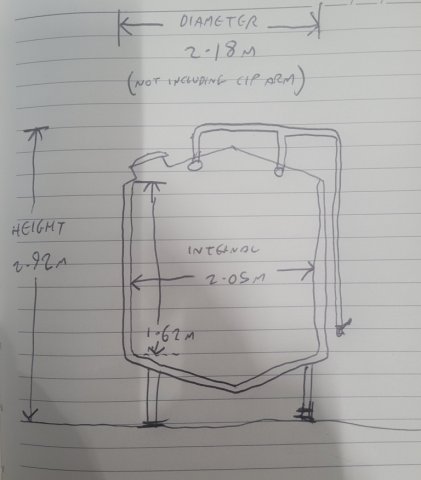 DIAMETER
2.18M
(NOT INCLUDING CIP ARM)
HEIGHT
2.92M
INTERNAL
2.05M
1.62M